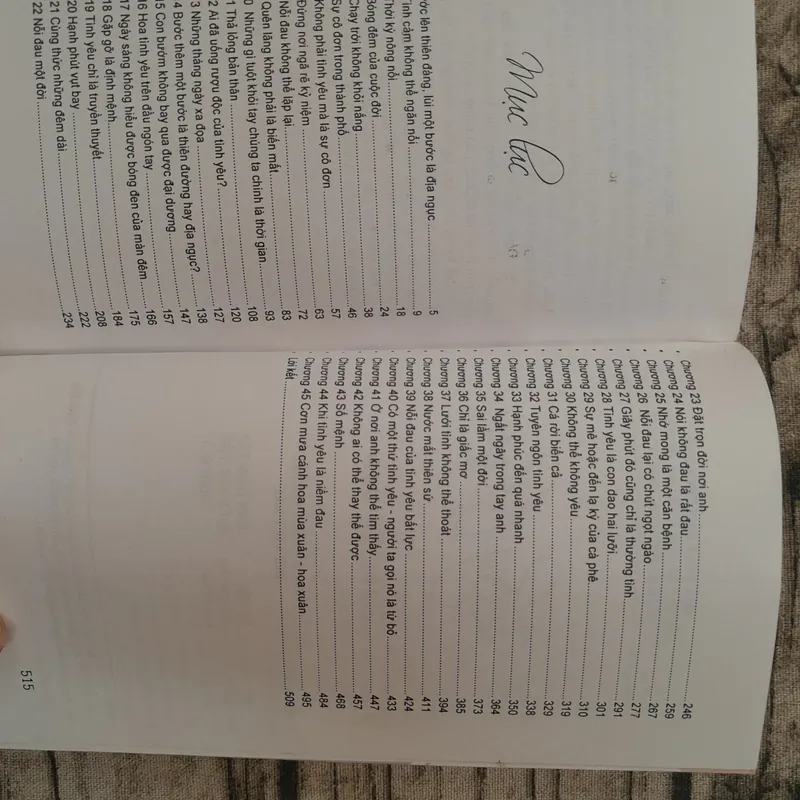 Mục lục
ớc lên thiên đàng, lùi một bước là địa ngục 5
ình cảm không thể ngăn nổi 9
hời kỳ nông nổi 18
Bóng đêm của cuộc đời 24
Chạy trời không khỏi nắng 38
Sự cô đơn trong thành phố 46
Không phải tình yêu mà là sự cô đơn 57
Đừng nơi ngã rẽ kỷ niệm 63
Nỗi đau không thể lặp lại 72
Quên lãng không phải là biến mất 83
0 Những gì tuột khỏi tay chúng ta chính là thời gian 93
1 Thả lỏng bản thân 108
2 Ai đã uống rượu độc của tình yêu? 120
3 Những tháng ngày xa đọa 127
4 Bước thêm một bước là thiên đường hay địa ngục? 138
15 Con bướm không bay qua được đại dương 147
16 Hoa tình yêu trên đầu ngón tay 157
17 Ngày sáng không hiểu được bóng đen của màn đêm 166
18 Gặp gỡ là định mệnh 175
19 Tình yêu chỉ là truyền thuyết 184
20 Hạnh phút vụt bay 208
21 Cùng thức những đêm dài 222
22 Nỗi đau một đời 234
Chương 23 Đặt trọn đời nơi anh 246
Chương 24 Nói không đau là rất đau 259
Chương 25 Nhớ mong là một căn bệnh 267
Chương 26 Nỗi đau lại có chút ngọt ngào 277
Chương 27 Giây phút đó cũng chỉ là thường tình 291
Chương 28 Tình yêu là con dao hai lưỡi 301
Chương 29 Sự mê hoặc đến lạ kỳ của cà phê 310
Chương 30 Không thể không yêu 319
Chương 31 Cá rời biển cả 329
Chương 32 Tuyên ngôn tình yêu 338
Chương 33 Hạnh phúc đến quá nhanh 350
Chương 34 Ngất ngây trong tay anh 364
Chương 35 Sai lầm một đời 373
Chương 36 Chỉ là giấc mơ 385
Chương 37 Lưới tình không thể thoát 394
Chương 38 Nước mắt thiên sứ 411
Chương 39 Nỗi đau của tình yêu bất lực 424
Chương 40 Có một thứ tình yêu - người ta gọi nó là từ bỏ 433
Chương 41 Ở nơi anh không thể tìm thấy 447
Chương 42 Không ai có thể thay thế được 457
Chương 43 Số mệnh 468
Chương 44 Khi tình yêu là niềm đau 484
Chương 45 Cơn mưa cánh hoa mùa xuân - hoa xuân 495
Lời kết 509
515